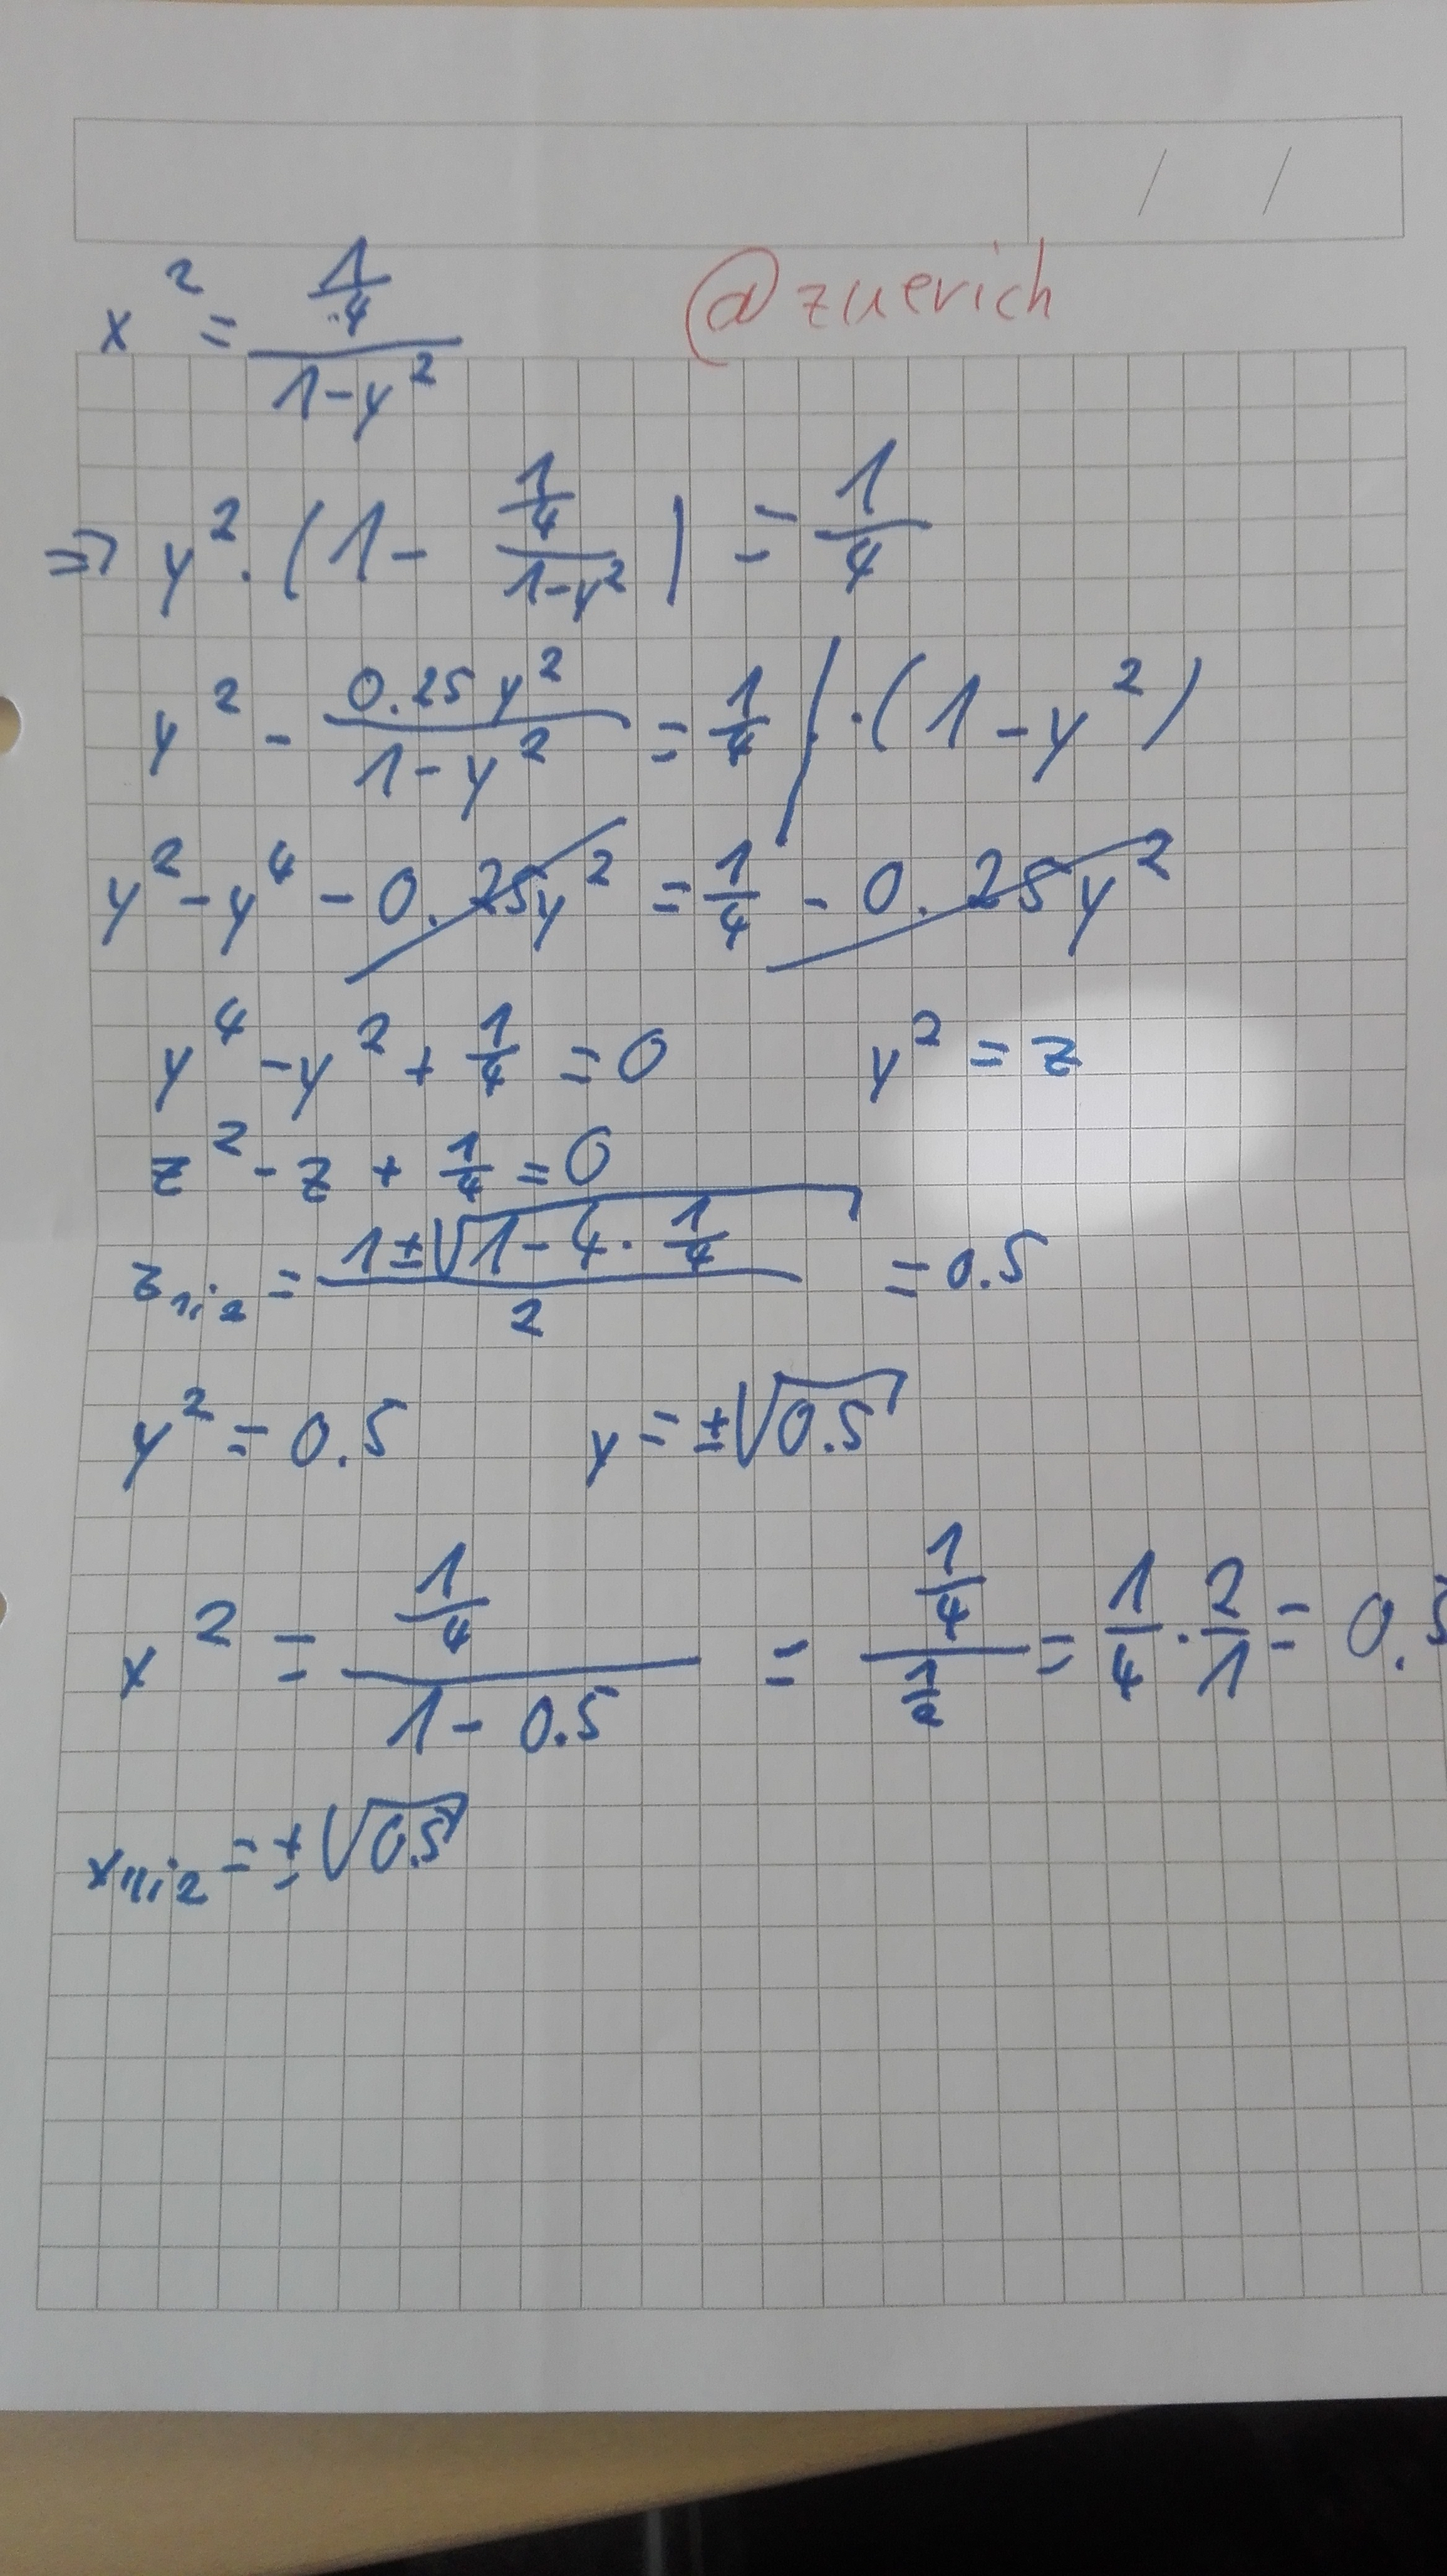 x² = (1/4)/(1-y²) @zuerich
⇒ y² · (1 - (1/4)/(1-y²)) = 1/4
y² - (0.25y²)/(1-y²) = 1/4 / · (1-y²)
y² - y⁴ - 0.25y² = 1/4 - 0.25y²
y⁴ - y² + 1/4 = 0 y² = z
z² - z + 1/4 = 0
z₁;₂ = (1±√(1-4·1/4))/2 = 0.5
y² = 0.5 y = ±√0.5
x² = (1/4)/(1-0.5) = (1/4)/(1/2) = 1/4 · 2/1 = 0.5
x₁;₂ = ±√0.5